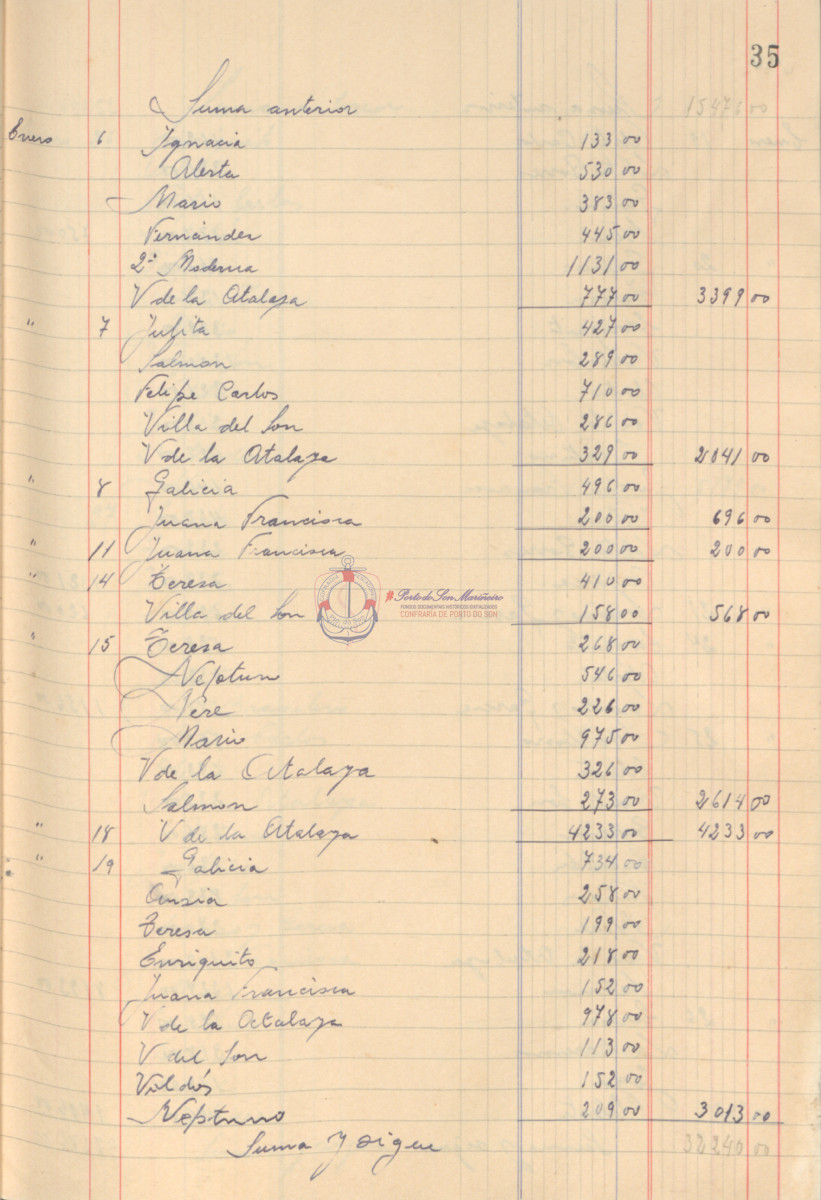 35
Suma anterior 15476 00
Enero 6 Ignacia 133 00
Alerta 530 00
Mario 383 00
Fernández 445 00
2ª Moderna 1131 00
V de la Atalaya 777 00 3399 00
" 7 Julita 427 00
Salmon 289 00
Felipe Carlos 710 00
Villa del Son 286 00
V de la Atalaya 329 00 2041 00
" 8 Galicia 496 00
Juana Francisca 200 00 696 00
" 11 Juana Francisca 200 00 200 00
" 14 Teresa 410 00
Porto do Son Mariñeiro
FONDOS DOCUMENTAIS HISTÓRICOS DIXITALIZADOS
CONFRARÍA DE PORTO DO SON
Villa del Son 158 00 568 00
" 15 Teresa 268 00
Neptun 546 00
Nere 226 00
Mario 975 00
V de la Atalaya 326 00
Salmon 273 00 2614 00
" 18 V de la Atalaya 4233 00 4233 00
" 19 Galicia 734 00
258 00
Teresa 199 00
Enriquito 218 00
Juana Francisca 152 00
V de la Atalaya 978 00
V del Son 113 00
152 00
Neptuno 209 00 3013 00
Suma y sigue 32240 00